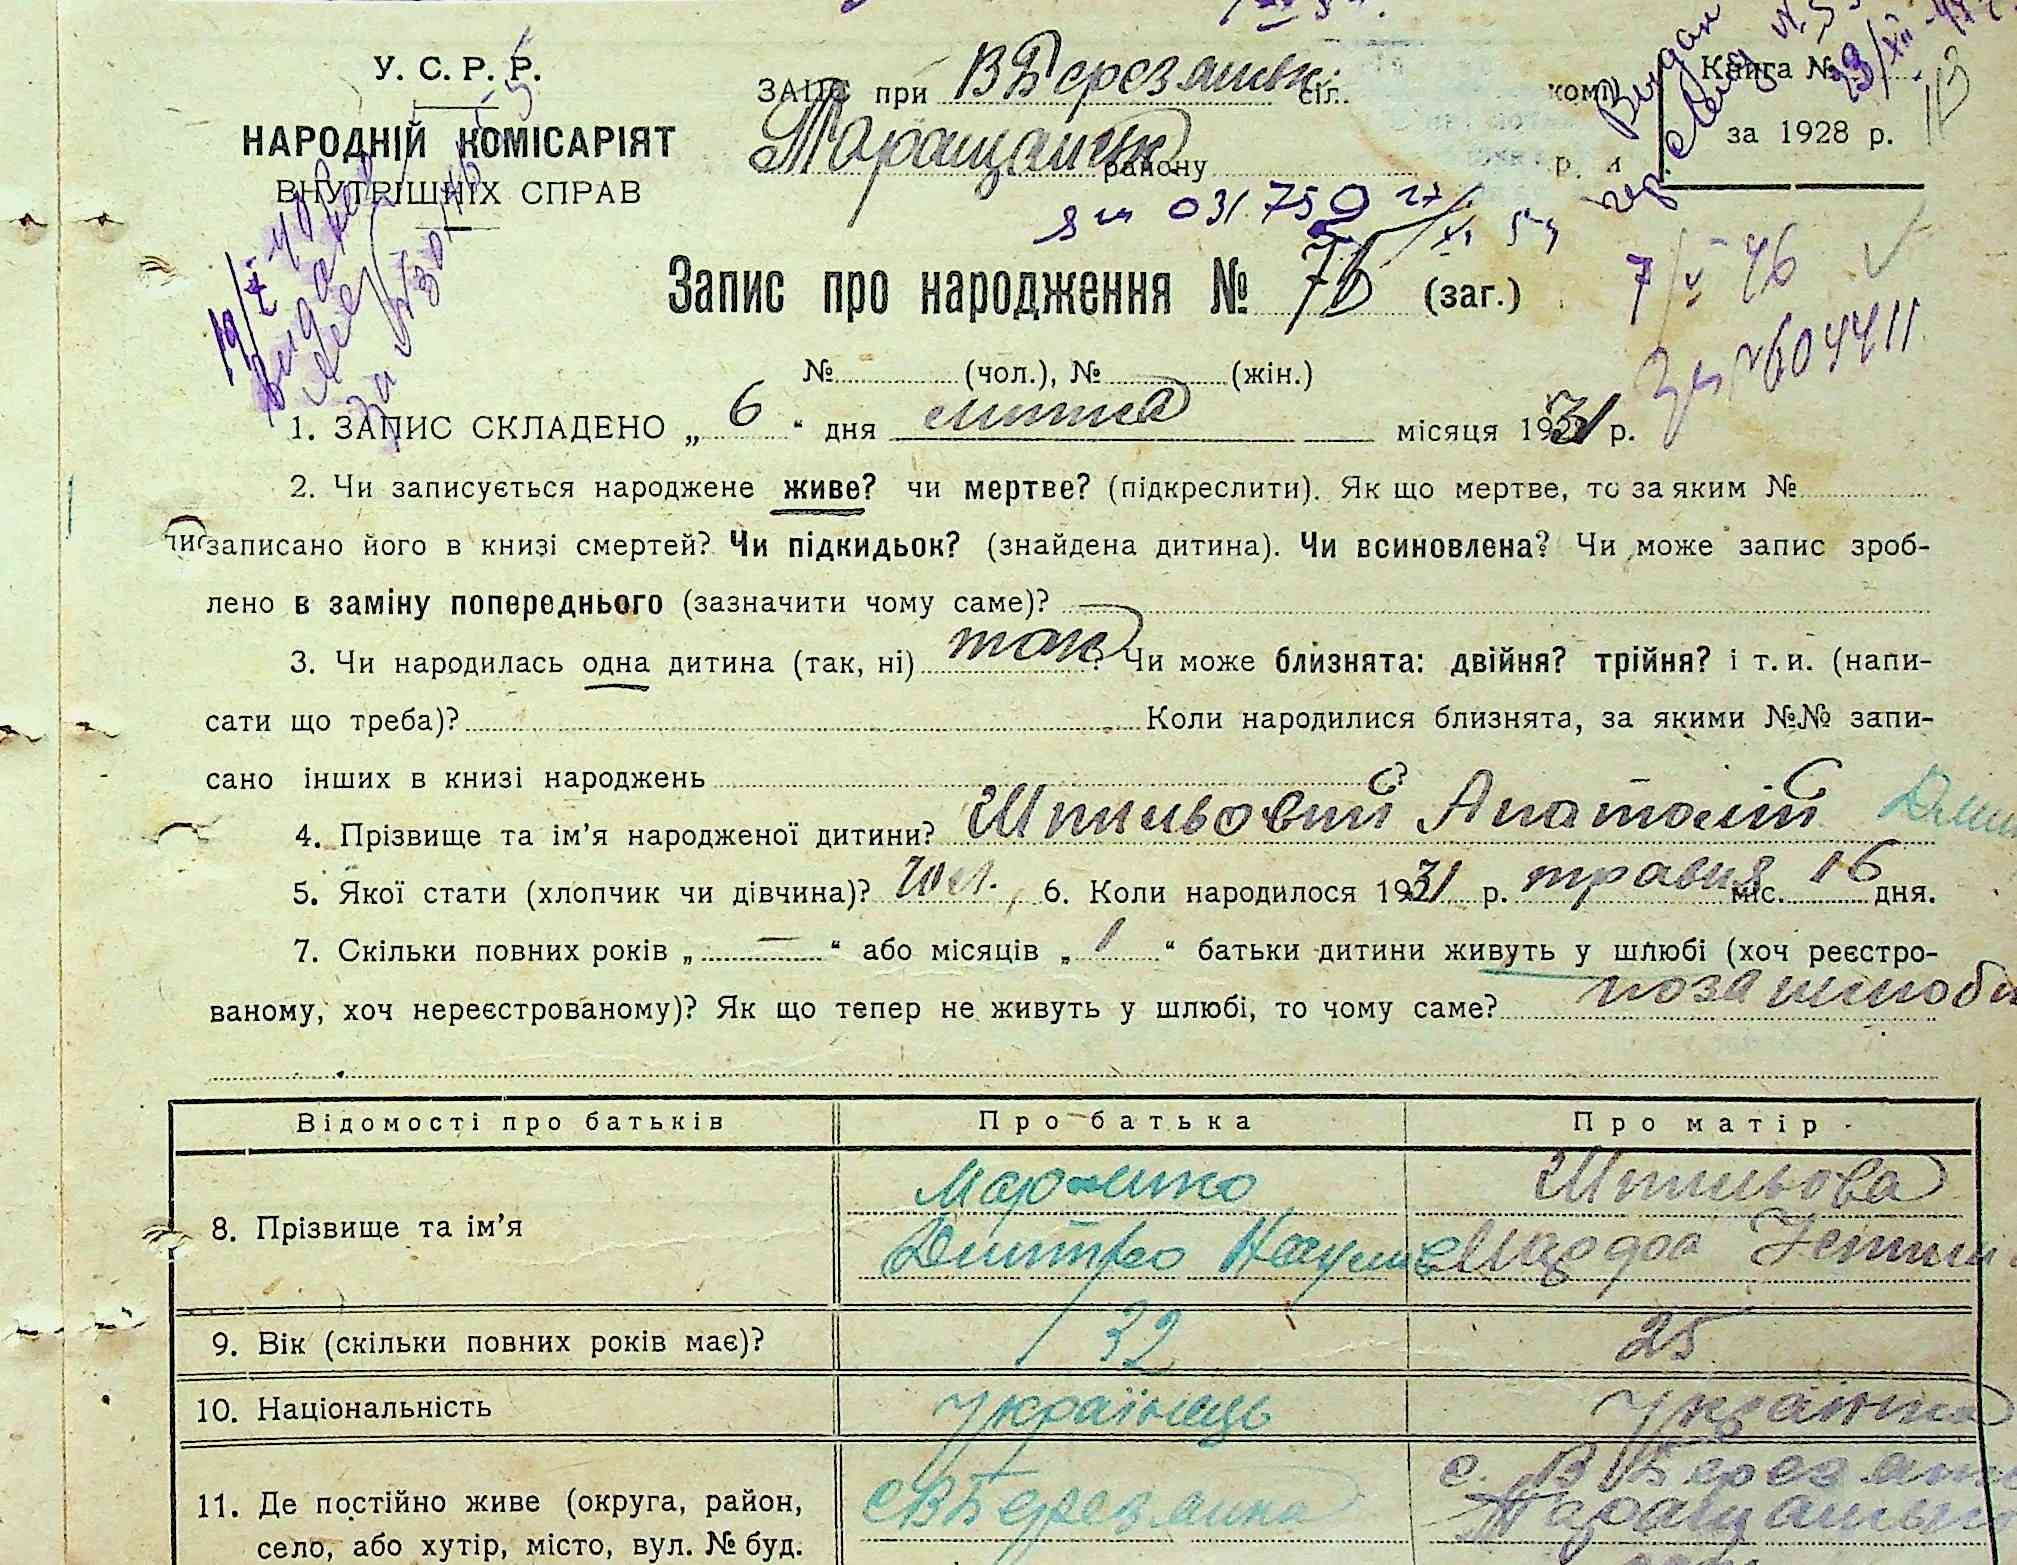 У. С. Р. Р.
НАРОДНІЙ КОМІСАРІЯТ
ВНУТРІШНІХ СПРАВ
ЗАПС при В Березянськ. сіл.
Таращанськ району
Книга №
за 1928 р.
113
19/V-40
7/V 46
Зая №604411
Запис про народження № 76 (заг.)
№ (чол.), № (жін.)
1. ЗАПИС СКЛАДЕНО „ 6 “ дня липня місяця 1931 р.
2. Чи записується народжене живе? чи мертве? (підкреслити). Як що мертве, то за яким №
записано його в книзі смертей? Чи підкидьок? (знайдена дитина). Чи всиновлена? Чи може запис зроб-
лено в заміну попереднього (зазначити чому саме)?
3. Чи народилась одна дитина (так, ні) так ? Чи може близнята: двійня? трійня? і т. и. (напи-
сати що треба)? Коли народилися близнята, за якими №№ запи-
сано інших в книзі народжень ?
4. Прізвище та ім’я народженої дитини? Шпильовий Анатолій
5. Якої стати (хлопчик чи дівчина)? чол. 6. Коли народилося 1931 р. травня міс. 16 дня.
7. Скільки повних років „ — “ або місяців „ 1 “ батьки дитини живуть у шлюбі (хоч реєстро-
ваному, хоч нереєстрованому)? Як що тепер не живуть у шлюбі, то чому саме? поза шлюбо
Відомості про батьків Про батька Про матір
8. Прізвище та ім’я Шпильова
Дмитро Наумів
9. Вік (скільки повних років має)? 32 25
10. Національність українець українка
11. Де постійно живе (округа, район, с В Березянка с. В Березянк
село, або хутір, місто, вул. № буд. Таращанськ